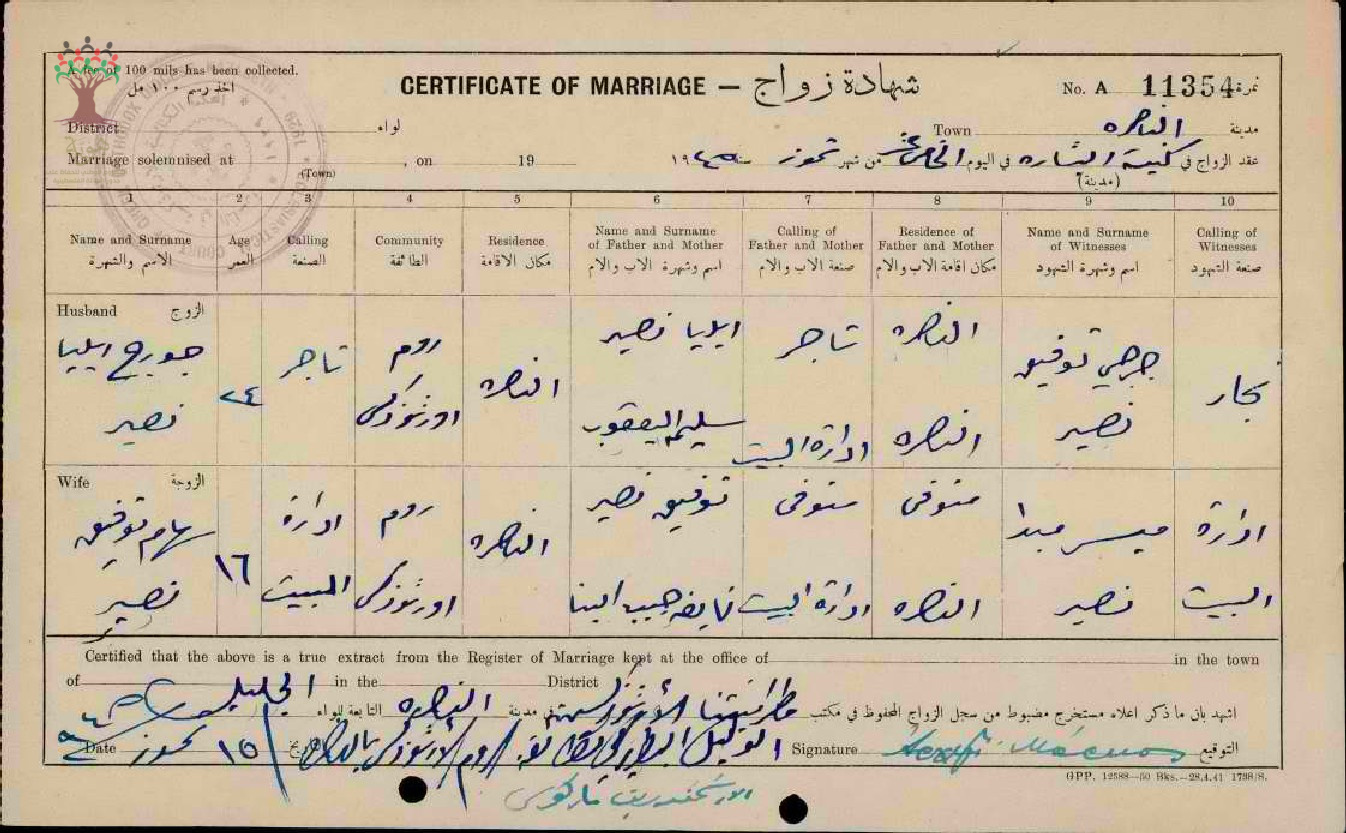 A fee of 100 mils has been collected.
CERTIFICATE OF MARRIAGE — شهادة زواج
No. A 11354 نمرة
District لواء
Town الناصرة مدينة
Marriage solemnised at , on 19
(Town)
عقد الزواج في كنيسة البشارة في اليوم الخامس عشر من شهر تموز سنة ١٩٤٥
(مدينة)
1 2 3 4 5 6 7 8 9 10
Name and Surname
الاسم والشهرة
Age
العمر
Calling
الصنعة
Community
الطائفة
Residence
مكان الاقامة
Name and Surname
of Father and Mother
اسم وشهرة الاب والام
Calling of
Father and Mother
صنعة الاب والام
Residence of
Father and Mother
مكان اقامة الاب والام
Name and Surname
of Witnesses
اسم وشهرة الشهود
Calling of
Witnesses
صنعة الشهود
Husband الزوج
جورج ايليا
نصير
٢٤
تاجر
روم
اورثوذكس
الناصرة
ايليا نصير
اليعقوب
تاجر
ادارة البيت
الناصرة
الناصرة
جرجي توفيق
نصير
Wife الزوجة
سهام توفيق
نصير
١٦
ادارة
البيت
روم
اورثوذكس
الناصرة
توفيق نصير
حبيب البنا
متوفى
ادارة البيت
متوفى
الناصرة
نصير
ادارة
البيت
Certified that the above is a true extract from the Register of Marriage kept at the office of in the town
of in the District
اشهد بان ما ذكر اعلاه مستخرج مضبوط من سجل الزواج المحفوظ في مكتب الأرثوذكس في مدينة الناصرة التابعة للواء الجليل
Date ١٥ تموز
الروم الارثوذكس
Signature التوقيع
GPP. 12588—50 Bks.—28.4.41 1738/S.